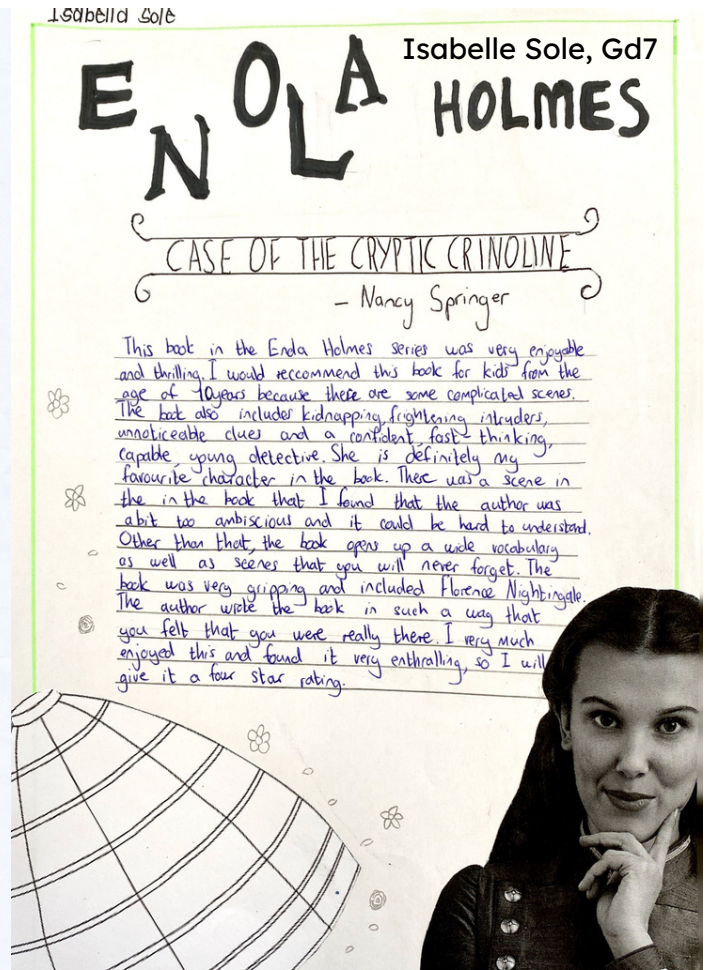 Isabella Sole
Isabelle Sole, Gd7
ENOLA HOLMES
CASE OF THE CRYPTIC CRINOLINE
- Nancy Springer
This book in the Enola Holmes series was very enjoyable
and thrilling. I would reccommend this book for kids from the
age of 10years because there are some complicated scenes.
The book also includes kidnapping, frightening intruders,
unnoticeable clues and a confident, fast-thinking,
capable, young detective. She is definitely my
favourite character in the book. There was a scene in
the in the book that I found that the author was
abit too ambiscious and it could be hard to understand.
Other than that, the book opens up a wide vocabulary
as well as scenes that you will never forget. The
book was very gripping and included Florence Nightingale.
The author wrote the book in such a way that
you felt that you were really there. I very much
enjoyed this and found it very enthralling, so I will
give it a four star rating.